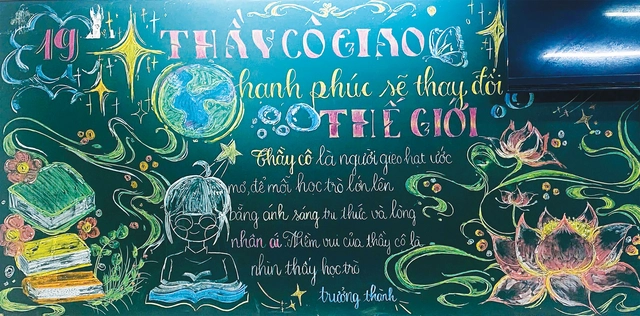 19
THẦY CÔ GIAO
hạnh phúc sẽ thay đổi
THẾ GIỚI
Thầy cô là người gieo hạt ước
mơ, để mỗi học trò lớn lên
bằng ánh sáng tri thức và lòng
nhân ái. Niềm vui của thầy cô là
nhìn thấy học trò
trưởng thành